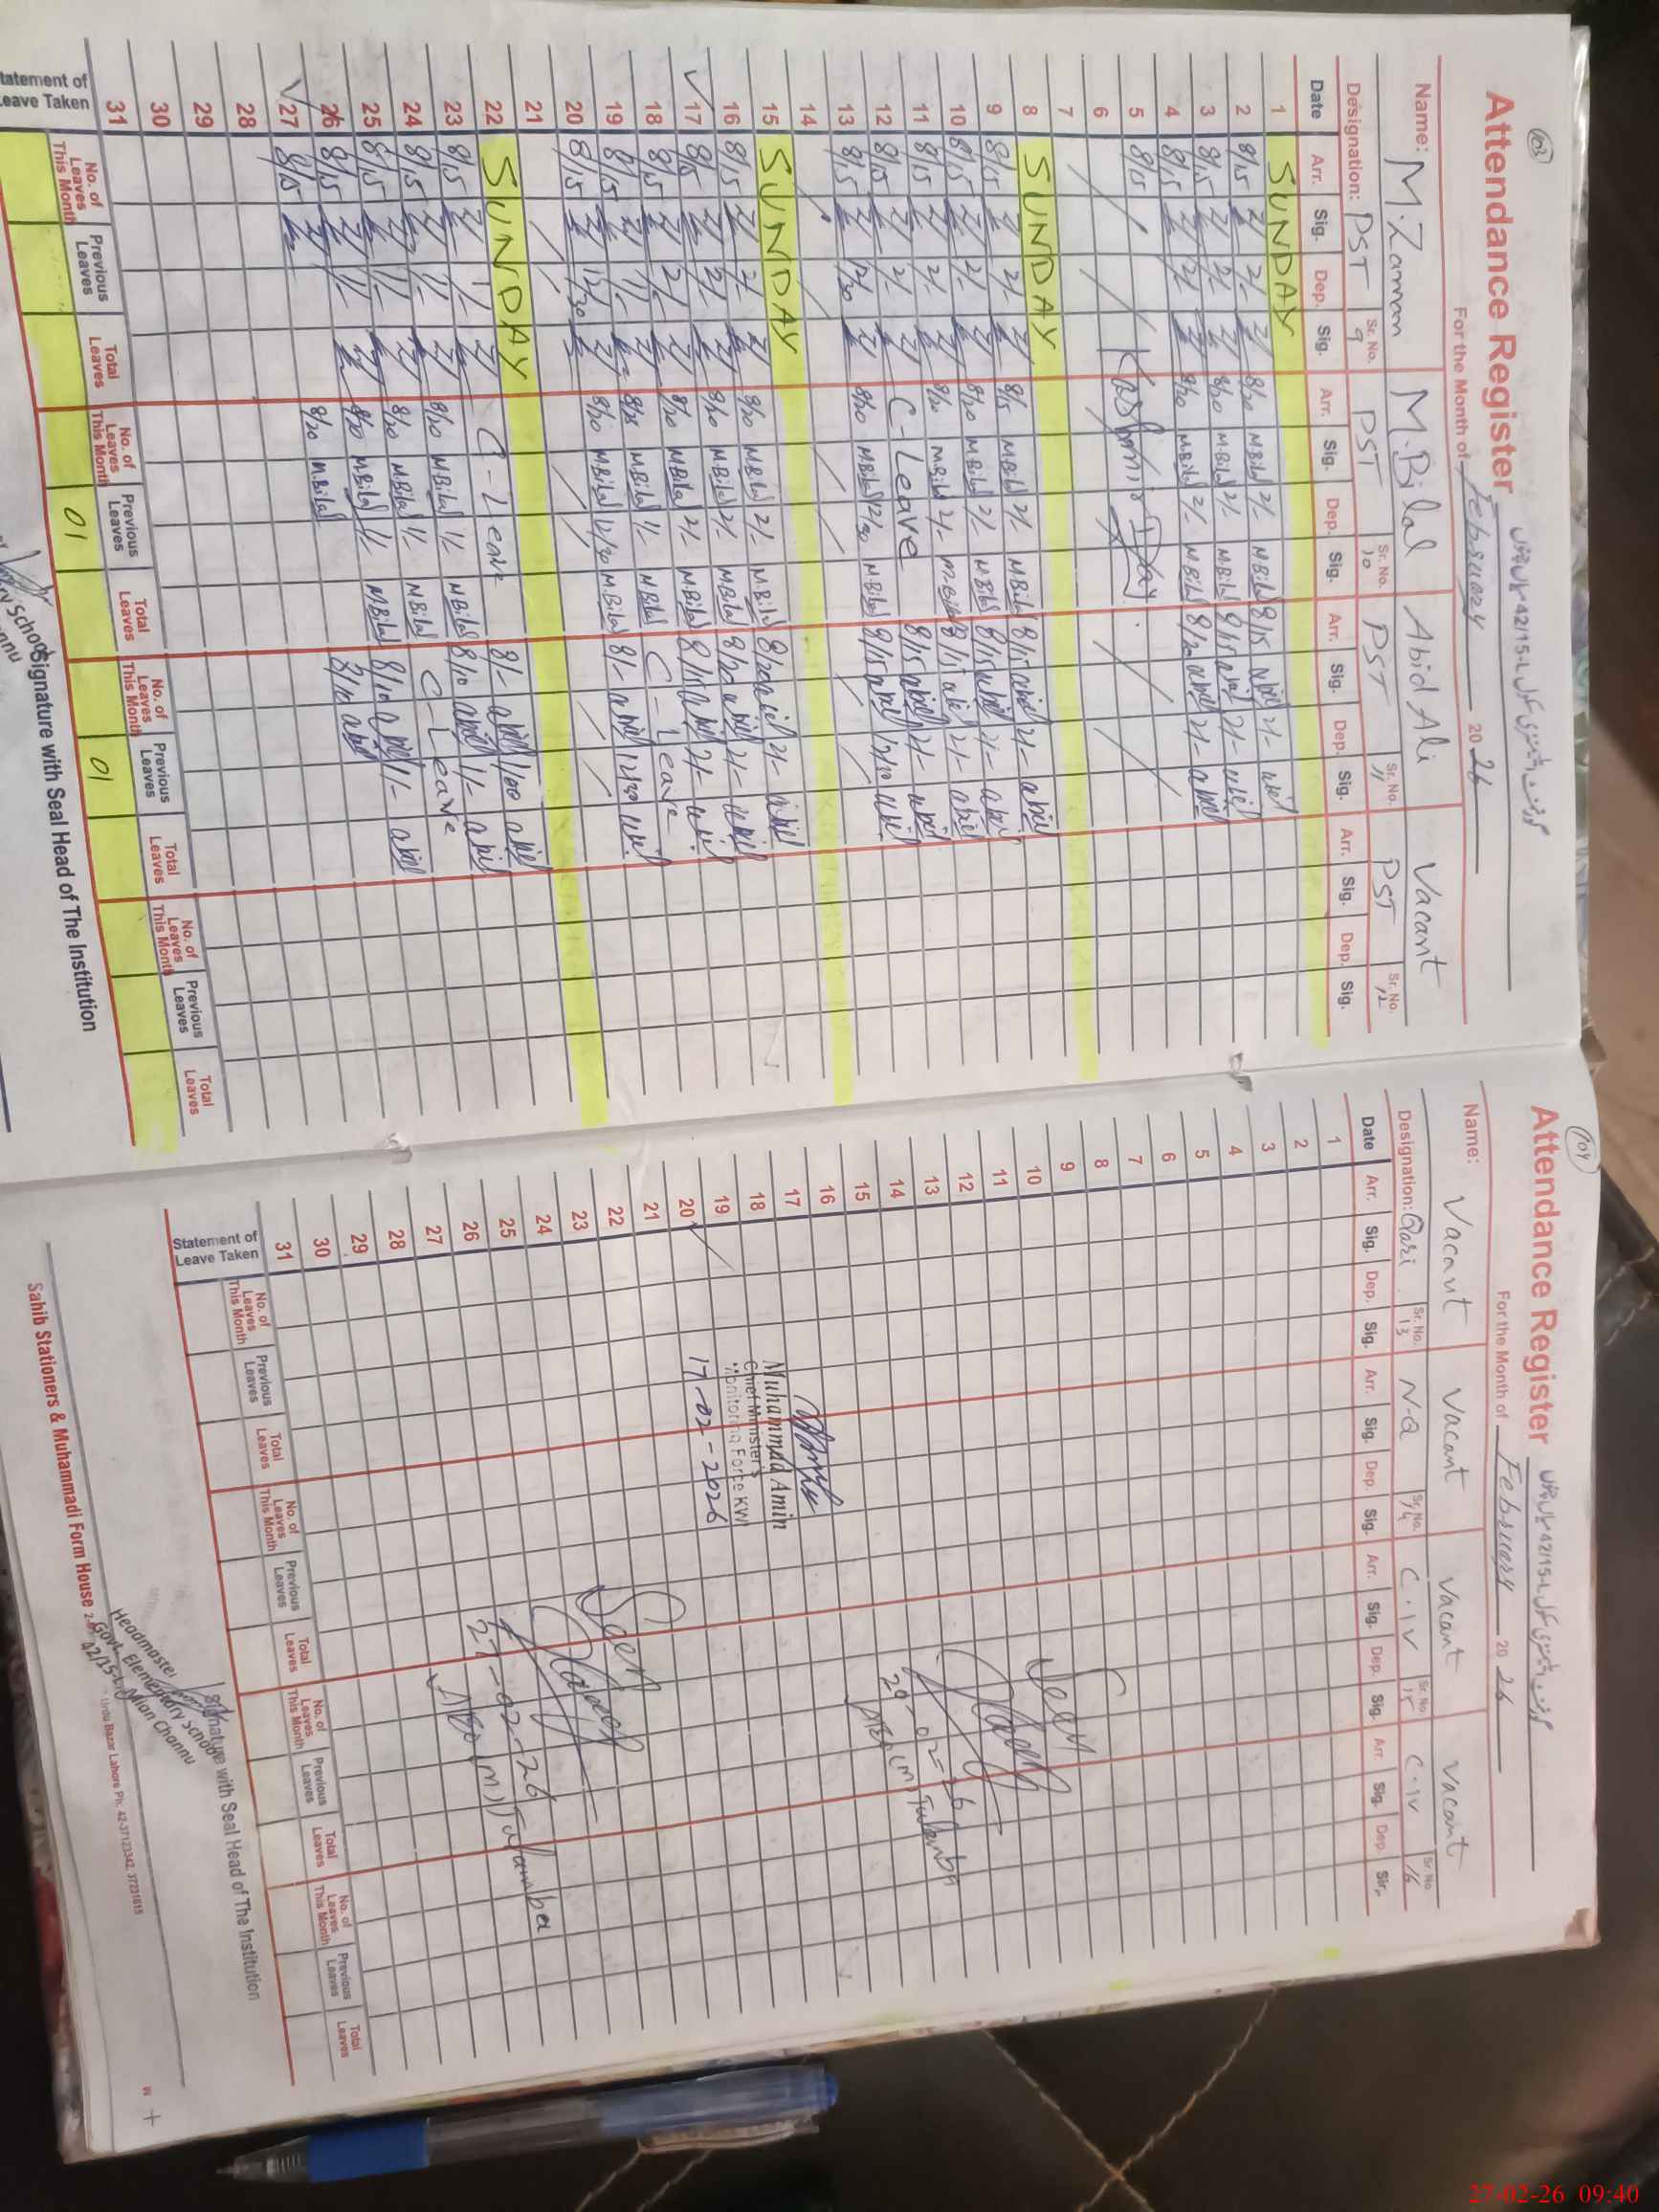 103
Attendance Register
For the Month of February 20 26
Name: M.Zaman M.Bilal Abid Ali Vacant
Designation: PST Sr. No. 9 PST Sr. No. 10 PST Sr. No. 11 PST Sr. No. 12
Date Arr. Sig. Dep. Sig. Arr. Sig. Dep. Sig. Arr. Sig. Dep. Sig. Arr. Sig. Dep. Sig.
1 SUNDAY
2 8/15 2/- 8/20 M.Bilal 2/- M.Bilal 8/15 abid 2/- abid
3 8/15 2/- 8/20 M.Bilal 2/- M.Bilal 8/15 abid 2/- abid
4 8/15 2/- 8/20 M.Bilal 2/- M.Bilal 8/20 abid 2/- abid
5 8/15 Kashmir Day
6
7
8 SUNDAY
9 8/15 2/- 8/15 M.Bilal 2/- M.Bilal 8/15 abid 2/- abid
10 8/15 2/- 8/20 M.Bilal 2/- M.Bilal 8/15 abid 2/- abid
11 8/15 2/- 8/20 M.Bilal 2/- M.Bilal 8/15 abid 2/- abid
12 8/15 2/- C-Leave 8/15 abid 2/- abid
13 8/15 12/30 8/20 M.Bilal 12/30 M.Bilal 8/15 abid 12/30 abid
14
15 SUNDAY
16 8/15 2/- 8/20 M.Bilal 2/- M.Bilal 8/20 abid 2/- abid
17 8/15 2/- 8/20 M.Bilal 2/- M.Bilal 8/20 abid 2/- abid
18 8/15 2/- 8/20 M.Bilal 2/- M.Bilal 8/15 abid 2/- abid
19 8/15 1/- M.Bilal 1/- M.Bilal C-Leave
20 8/15 12/30 8/20 M.Bilal 12/30 M.Bilal 8/- abid 12/30 abid
21
22 SUNDAY
23 8/15 1/- C-Leave 8/- abid 1/00 abid
24 8/15 1/- 8/20 M.Bilal 1/- M.Bilal 8/10 abid 1/- abid
25 8/15 1/- 8/20 M.Bilal 1/- M.Bilal C-Leave
26 8/15 1/- 8/20 M.Bilal 1/- M.Bilal 8/10 abid 1/- abid
27 8/15 8/20 M.Bilal 8/10 abid
28
29
30
31
Statement of Leave Taken
No. of Leaves This Month Previous Leaves Total Leaves No. of Leaves This Month Previous Leaves Total Leaves No. of Leaves This Month Previous Leaves Total Leaves No. of Leaves This Month Previous Leaves Total Leaves
01 01
Signature with Seal Head of The Institution
104
Attendance Register
For the Month of February 20 26
Name: Vacant Vacant Vacant Vacant
Designation: Qari Sr. No. 13 N-Q Sr. No. 14 C.IV Sr. No. 15 C.IV Sr. No. 16
Date Arr. Sig. Dep. Sig. Arr. Sig. Dep. Sig. Arr. Sig. Dep. Sig. Arr. Sig. Dep. Sig.
1
2
3
4
5
6
7
8
9
10 Seen
11
12
13 20-02-26
14 AEO (M) Tulamba
15
16
17
18 Muhammad Amin
19 Chief Minister's
Monitoring Force KWL
20 17-02-2026
21
22 Seen
23
24
25
26 27-02-26
27 AEO (M) Tulamba
28
29
30
31
Statement of Leave Taken
No. of Leaves This Month Previous Leaves Total Leaves No. of Leaves This Month Previous Leaves Total Leaves No. of Leaves This Month Previous Leaves Total Leaves No. of Leaves This Month Previous Leaves Total Leaves
Signature with Seal Head of The Institution
Headmaster
Govt. Elementary School
42/15-L Mian Channu
Sahib Stationers & Muhammadi Form House
Urdu Bazar Lahore Ph: 42-37123342, 37231615
27-02-26 09:40